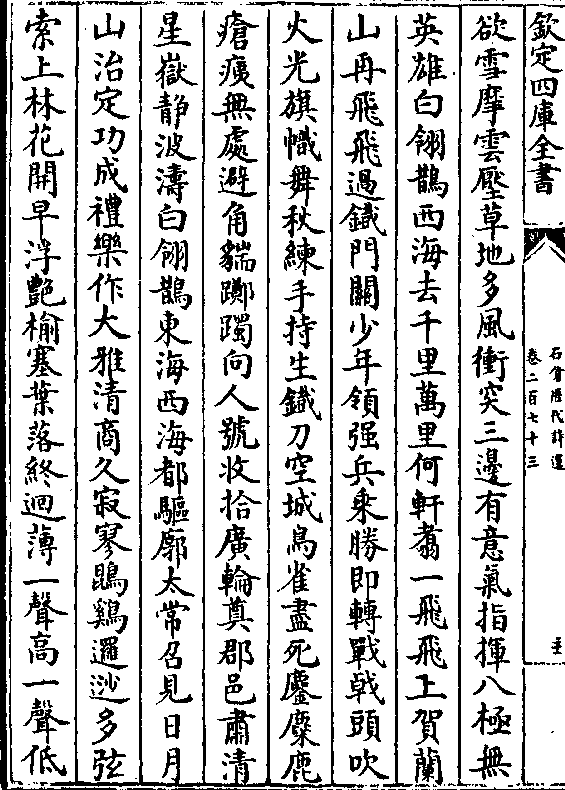 欽定四庫全書
石倉歷代詩選
卷二百七十三
欲雪摩雲壓草地多風衝突三邊有意氣指揮八極無
英雄白翎鵲西海去千里萬里何軒翥一飛飛上賀蘭
山再飛飛過鐵門關少年領强兵乗勝即轉戰戟頭吹
火光旗幟舞秋練手持生鐵刀空城鳥雀盡死鏖麋鹿
瘡痍無處避角貒躑躅向人號收拾廣輪奠郡邑肅清
星嶽静波濤白翎鵲東海西海都驅廓太常召見日月
山治定功成禮樂作大雅清商久寂寥鵾鷄邐逤多弦
索上林花開早浮艶榆塞葉落終迴薄一聲高一聲低